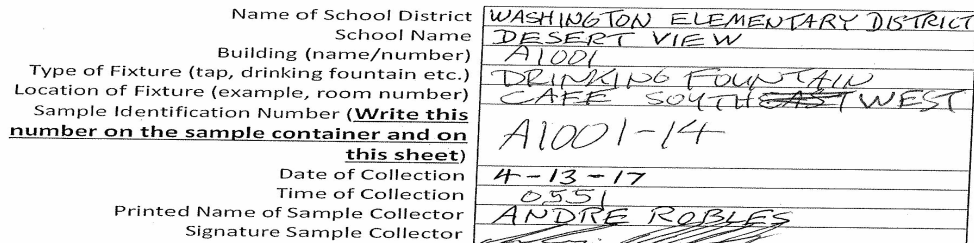 Name of School District WASHINGTON ELEMENTARY DISTRICT
School Name DESERT VIEW
Building (name/number) A1001
Type of Fixture (tap, drinking fountain etc.) DRINKING FOUNTAIN
Location of Fixture (example, room number) CAFE SOUTH WEST
Sample Identification Number (Write this
number on the sample container and on
this sheet) A1001-14
Date of Collection 4-13-17
Time of Collection 0551
Printed Name of Sample Collector ANDRE ROBLES
Signature Sample Collector